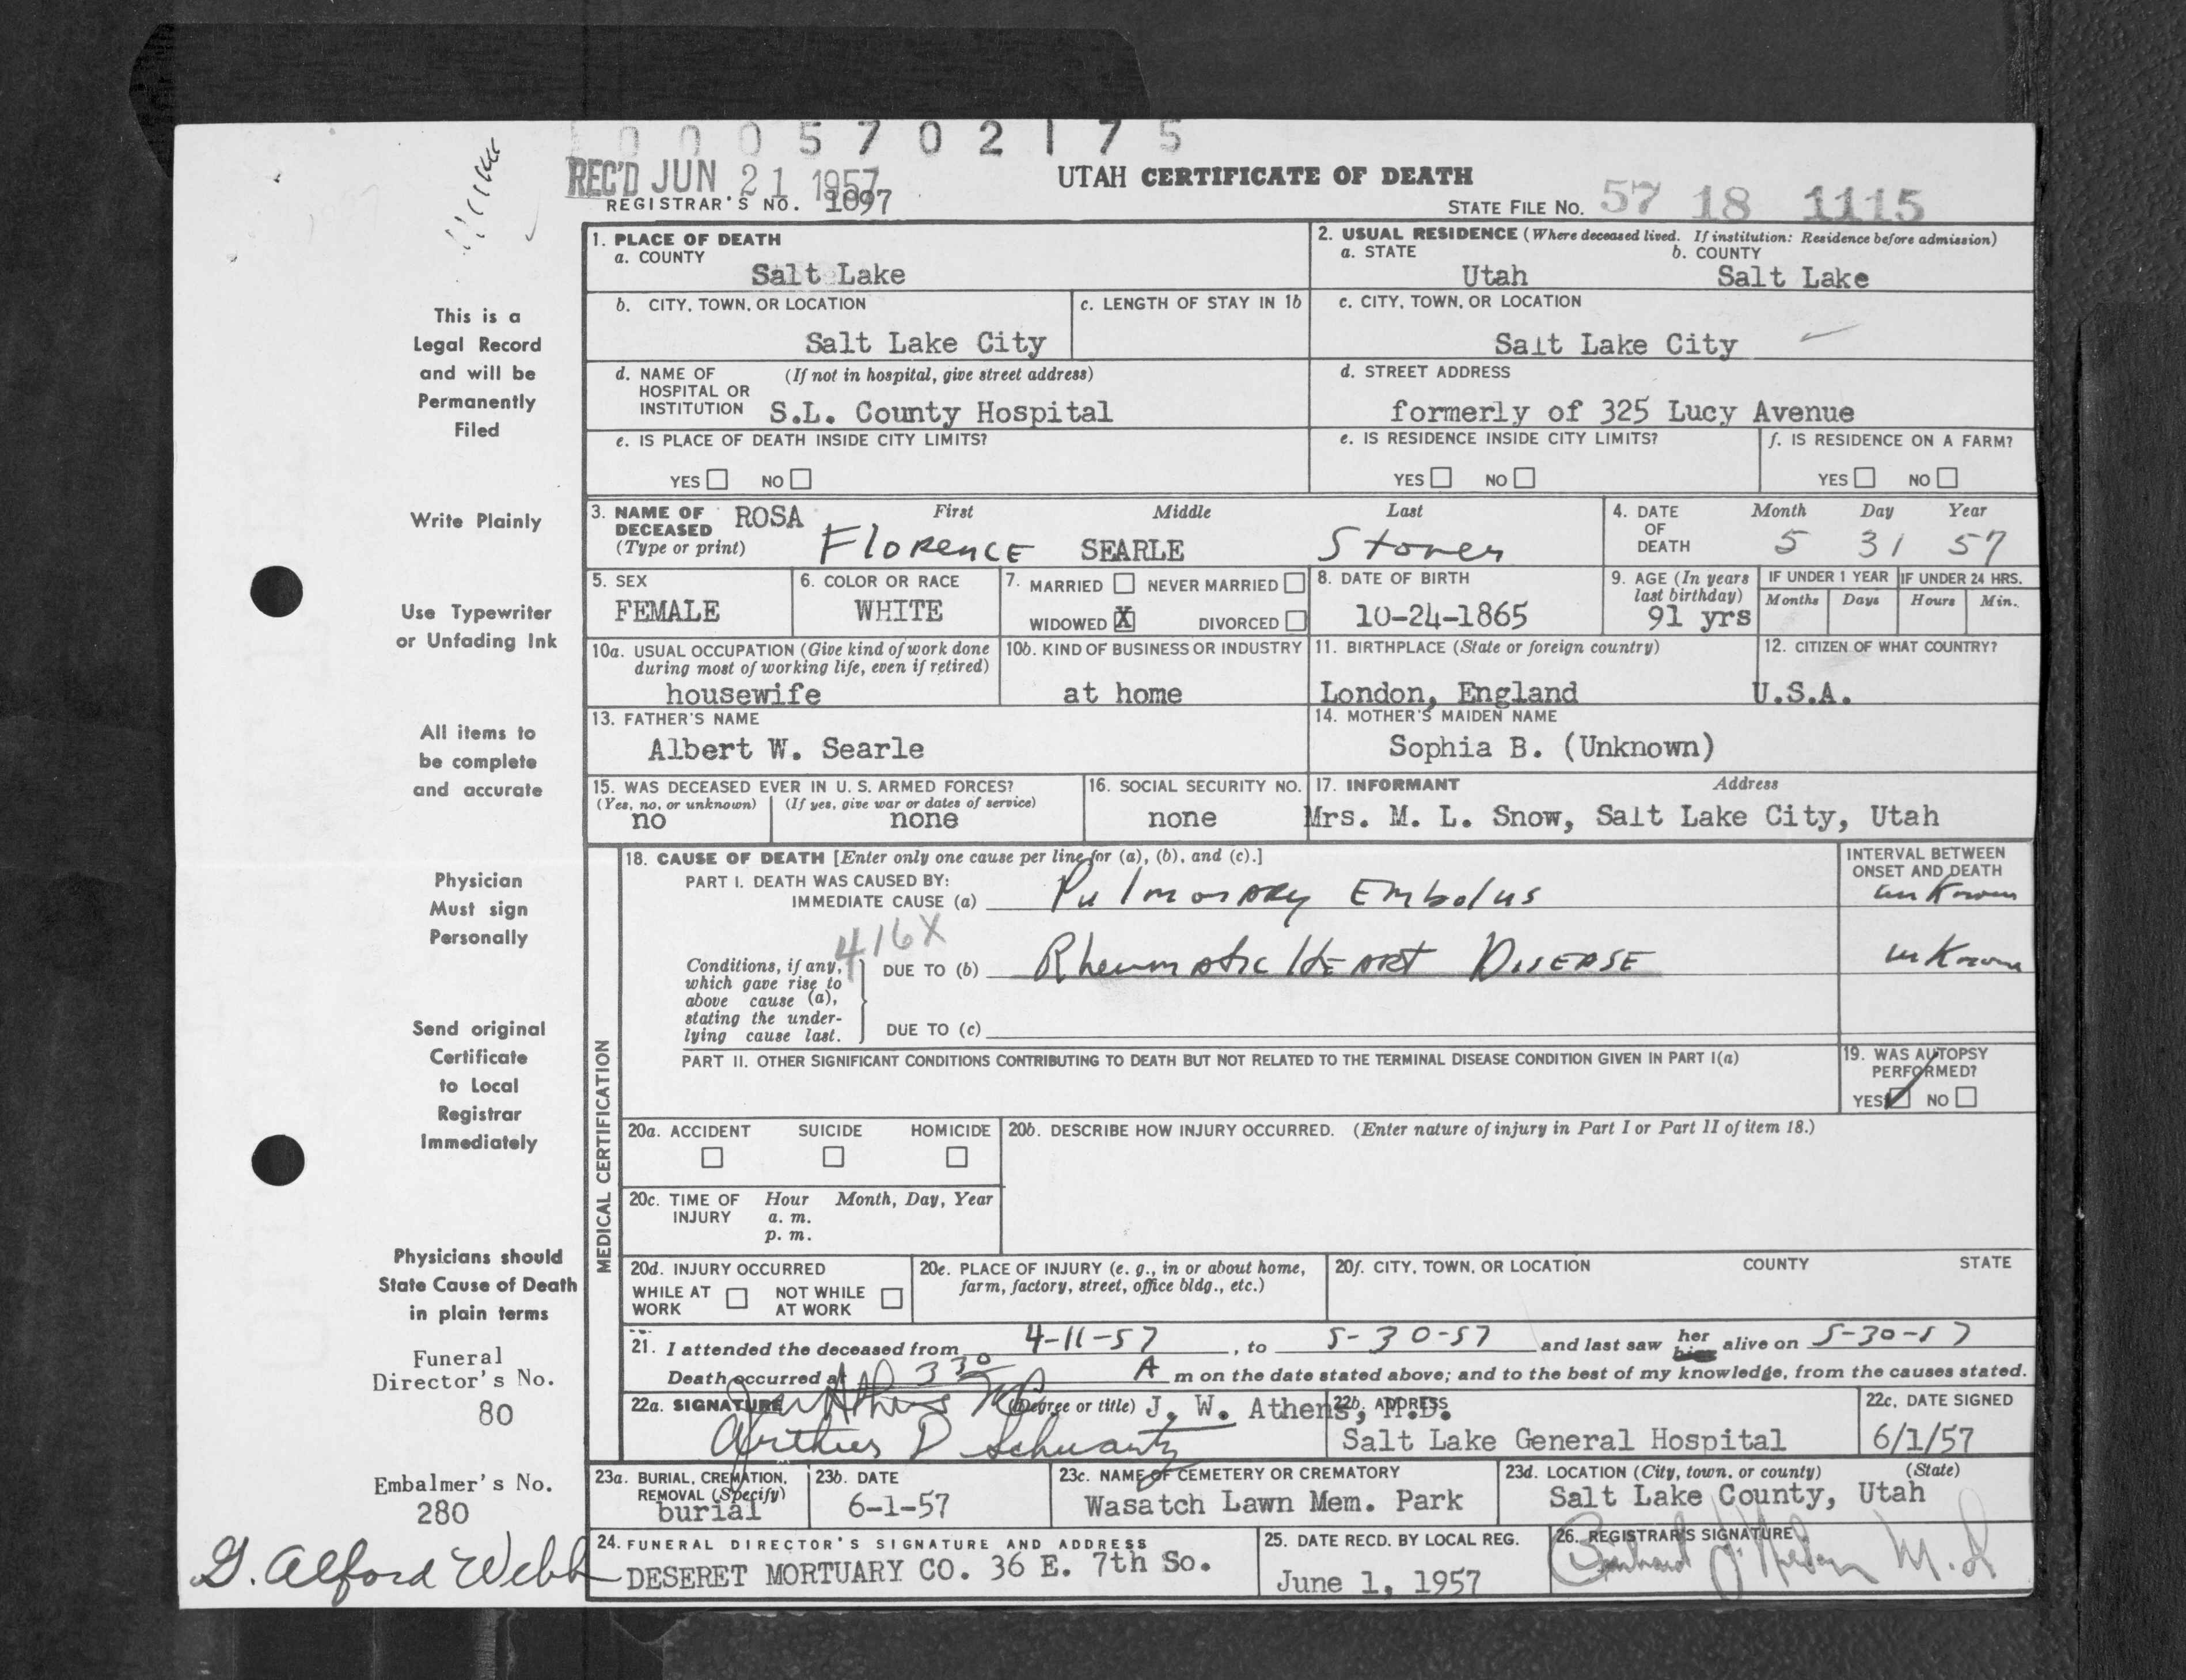 0 0 0 5 7 0 2 1 7 5
REC'D JUN 21 1957
UTAH CERTIFICATE OF DEATH
REGISTRAR'S NO. 1097
STATE FILE NO. 57 18 1115
1. PLACE OF DEATH
a. COUNTY
Salt Lake
2. USUAL RESIDENCE (Where deceased lived. If institution: Residence before admission)
a. STATE b. COUNTY
Utah Salt Lake
b. CITY, TOWN, OR LOCATION
Salt Lake City
c. LENGTH OF STAY IN 1b
c. CITY, TOWN, OR LOCATION
Salt Lake City
d. NAME OF (If not in hospital, give street address)
HOSPITAL OR
INSTITUTION S.L. County Hospital
d. STREET ADDRESS
formerly of 325 Lucy Avenue
e. IS PLACE OF DEATH INSIDE CITY LIMITS?
YES NO
e. IS RESIDENCE INSIDE CITY LIMITS?
YES NO
f. IS RESIDENCE ON A FARM?
YES NO
3. NAME OF DECEASED (Type or print)
First Middle Last
ROSA Florence SEARLE Stoner
4. DATE OF DEATH
Month Day Year
5 31 57
5. SEX
FEMALE
6. COLOR OR RACE
WHITE
7. MARRIED NEVER MARRIED
WIDOWED X DIVORCED
8. DATE OF BIRTH
10-24-1865
9. AGE (In years last birthday)
91 yrs
IF UNDER 1 YEAR
Months Days
IF UNDER 24 HRS.
Hours Min.
10a. USUAL OCCUPATION (Give kind of work done
during most of working life, even if retired)
housewife
10b. KIND OF BUSINESS OR INDUSTRY
at home
11. BIRTHPLACE (State or foreign country)
London, England
12. CITIZEN OF WHAT COUNTRY?
U.S.A.
13. FATHER'S NAME
Albert W. Searle
14. MOTHER'S MAIDEN NAME
Sophia B. (Unknown)
15. WAS DECEASED EVER IN U. S. ARMED FORCES?
(Yes, no, or unknown) (If yes, give war or dates of service)
no none
16. SOCIAL SECURITY NO.
none
17. INFORMANT Address
Mrs. M. L. Snow, Salt Lake City, Utah
MEDICAL CERTIFICATION
18. CAUSE OF DEATH [Enter only one cause per line for (a), (b), and (c).]
INTERVAL BETWEEN
ONSET AND DEATH
PART I. DEATH WAS CAUSED BY:
IMMEDIATE CAUSE (a) Pulmonary Embolus unknown
416X
Conditions, if any,
which gave rise to
above cause (a),
stating the under-
lying cause last.
DUE TO (b) Rheumatic Heart Disease unknown
DUE TO (c)
PART II. OTHER SIGNIFICANT CONDITIONS CONTRIBUTING TO DEATH BUT NOT RELATED TO THE TERMINAL DISEASE CONDITION GIVEN IN PART I(a)
19. WAS AUTOPSY
PERFORMED?
YES NO
20a. ACCIDENT SUICIDE HOMICIDE
20b. DESCRIBE HOW INJURY OCCURRED. (Enter nature of injury in Part I or Part II of item 18.)
20c. TIME OF INJURY
Hour Month, Day, Year
a. m.
p. m.
20d. INJURY OCCURRED
WHILE AT WORK NOT WHILE AT WORK
20e. PLACE OF INJURY (e. g., in or about home,
farm, factory, street, office bldg., etc.)
20f. CITY, TOWN, OR LOCATION COUNTY STATE
21. I attended the deceased from 4-11-57, to 5-30-57 and last saw her him alive on 5-30-57
Death occurred at 3 30 A m on the date stated above; and to the best of my knowledge, from the causes stated.
22a. SIGNATURE (Degree or title) J. W. Athens, M.D.
Arthur D Schwartz
22b. ADDRESS
Salt Lake General Hospital
22c. DATE SIGNED
6/1/57
23a. BURIAL, CREMATION,
REMOVAL (Specify)
burial
23b. DATE
6-1-57
23c. NAME OF CEMETERY OR CREMATORY
Wasatch Lawn Mem. Park
23d. LOCATION (City, town, or county) (State)
Salt Lake County, Utah
24. FUNERAL DIRECTOR'S SIGNATURE AND ADDRESS
DESERET MORTUARY CO. 36 E. 7th So.
25. DATE RECD. BY LOCAL REG.
June 1, 1957
26. REGISTRAR'S SIGNATURE
This is a
Legal Record
and will be
Permanently
Filed
Write Plainly
Use Typewriter
or Unfading Ink
All items to
be complete
and accurate
Physician
Must sign
Personally
Send original
Certificate
to Local
Registrar
Immediately
Physicians should
State Cause of Death
in plain terms
Funeral
Director's No.
80
Embalmer's No.
280
G. Alford Webb